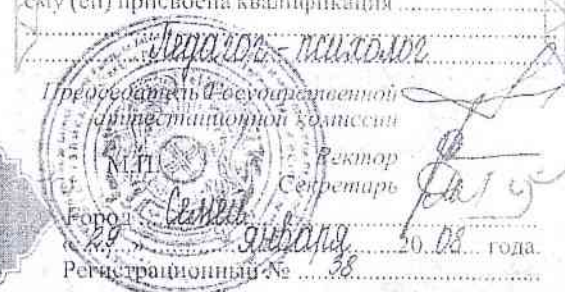 ему (ей) присвоена квалификация
Педагог - психолог
Председатель Государственной
аттестационной комиссии
М.П.
Ректор
Секретарь
Город Семей
« 29 » января 2008 года.
Регистрационный № 38